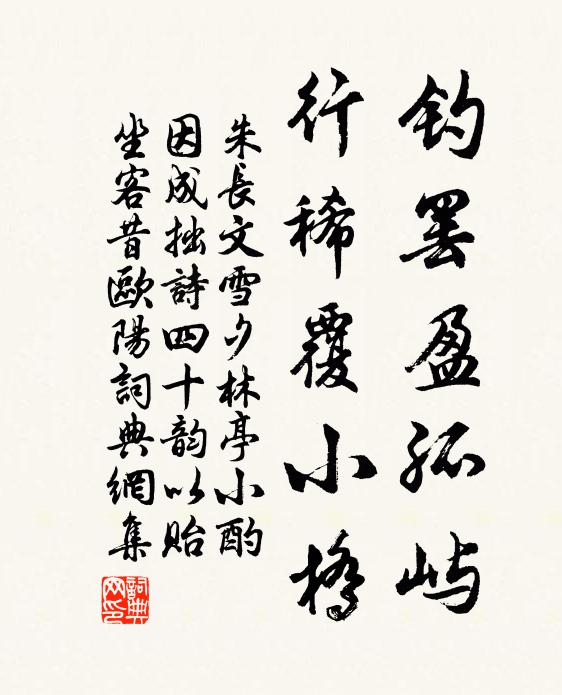 釣罢盈孤屿
行稀覆小橋
朱長文雪夕林亭小酌
因成拙詩四十韵以贻
坐客昔歐陽詞典網集
詞典
网印